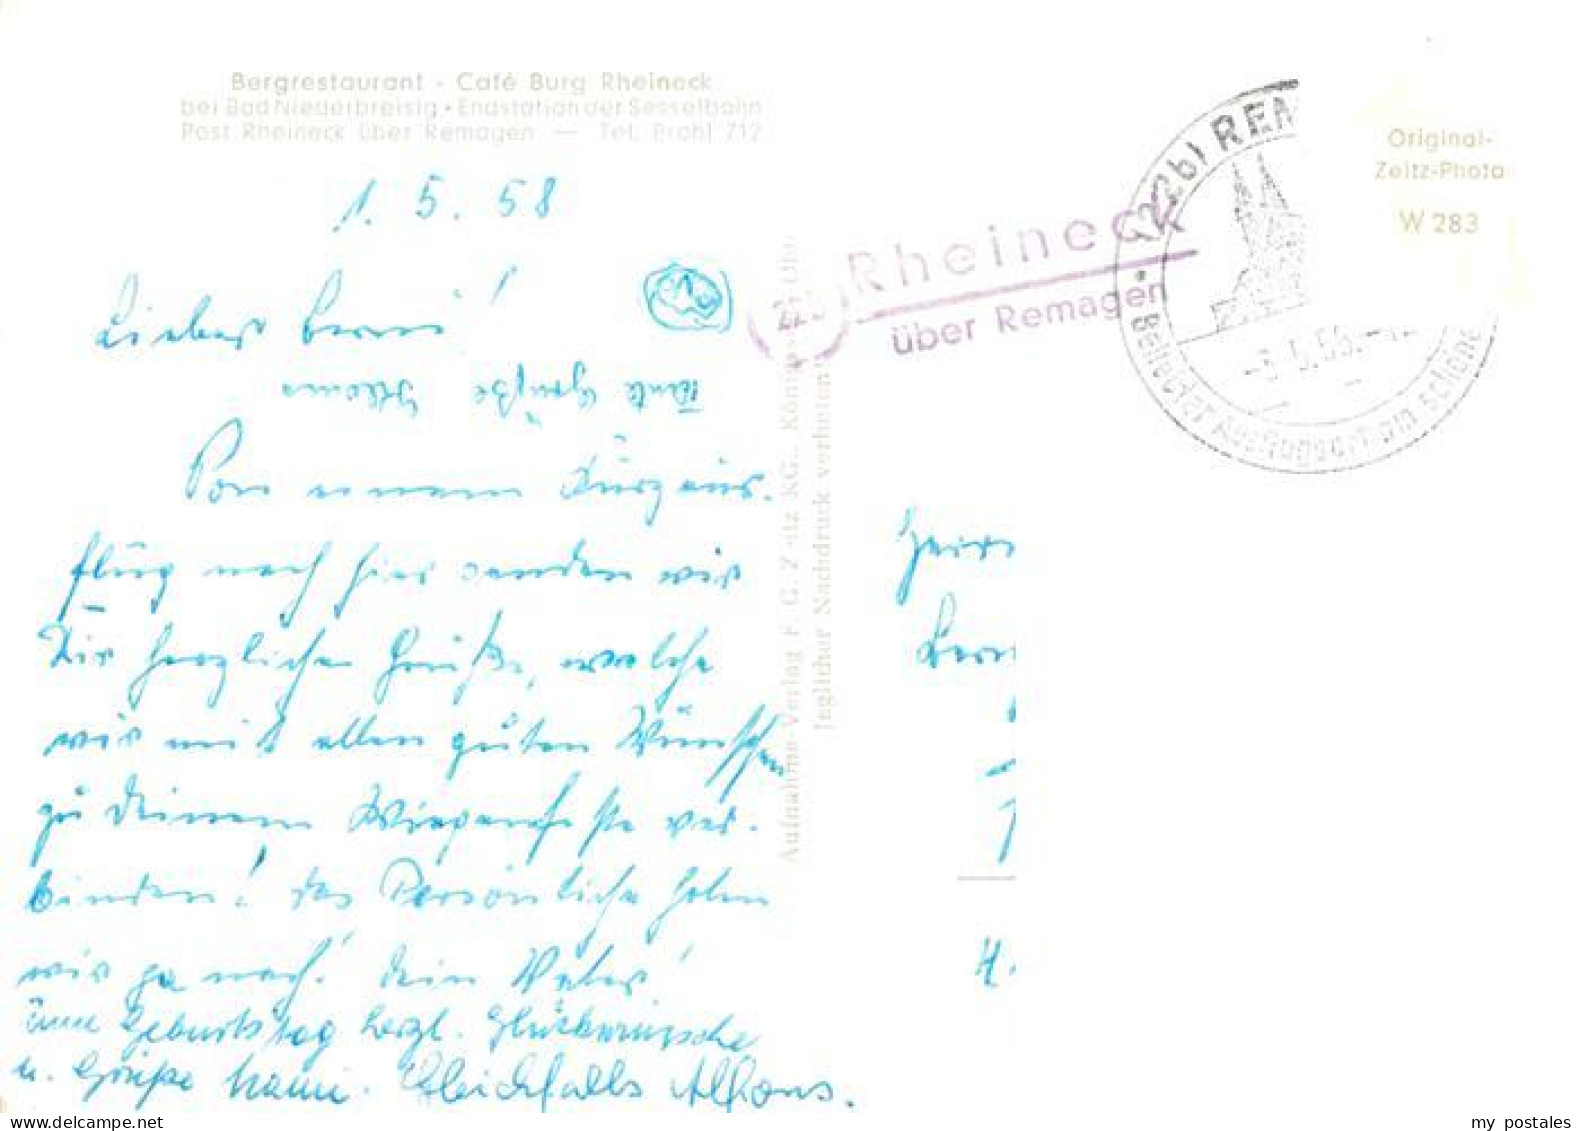 Bergrestaurant - Café Burg Rheineck
bei Bad Niederbreisig • Endstation der Sesselbahn
Post Rheineck über Remagen — Tel. Brohl 712
1. 5. 58
Lieber Berni!
Tante Grüße
Von einem Kurzaus-
flug nach hier senden wir
Dir herzliche Grüße, welche
wir mit allen guten Wünschen
zu Deinem Wiegenfeste ver-
binden! Das Persönliche holen
wir ja nach! Dein Vater!
Zum Geburtstag herzl. Glückwünsche
u. Grüße Mami. Gleichfalls Alfons.
Aufnahme-Verlag F. G. Zeitz KG., Königs
Jeglicher Nachdruck verboten!
22b
Rheineck
über Remagen
(22b) REM
-3.5.58.-12
Beliebter Ausflugsort am schöne
Original-
Zeitz-Photo
W 283
Herrn
Bern
H.
my postales